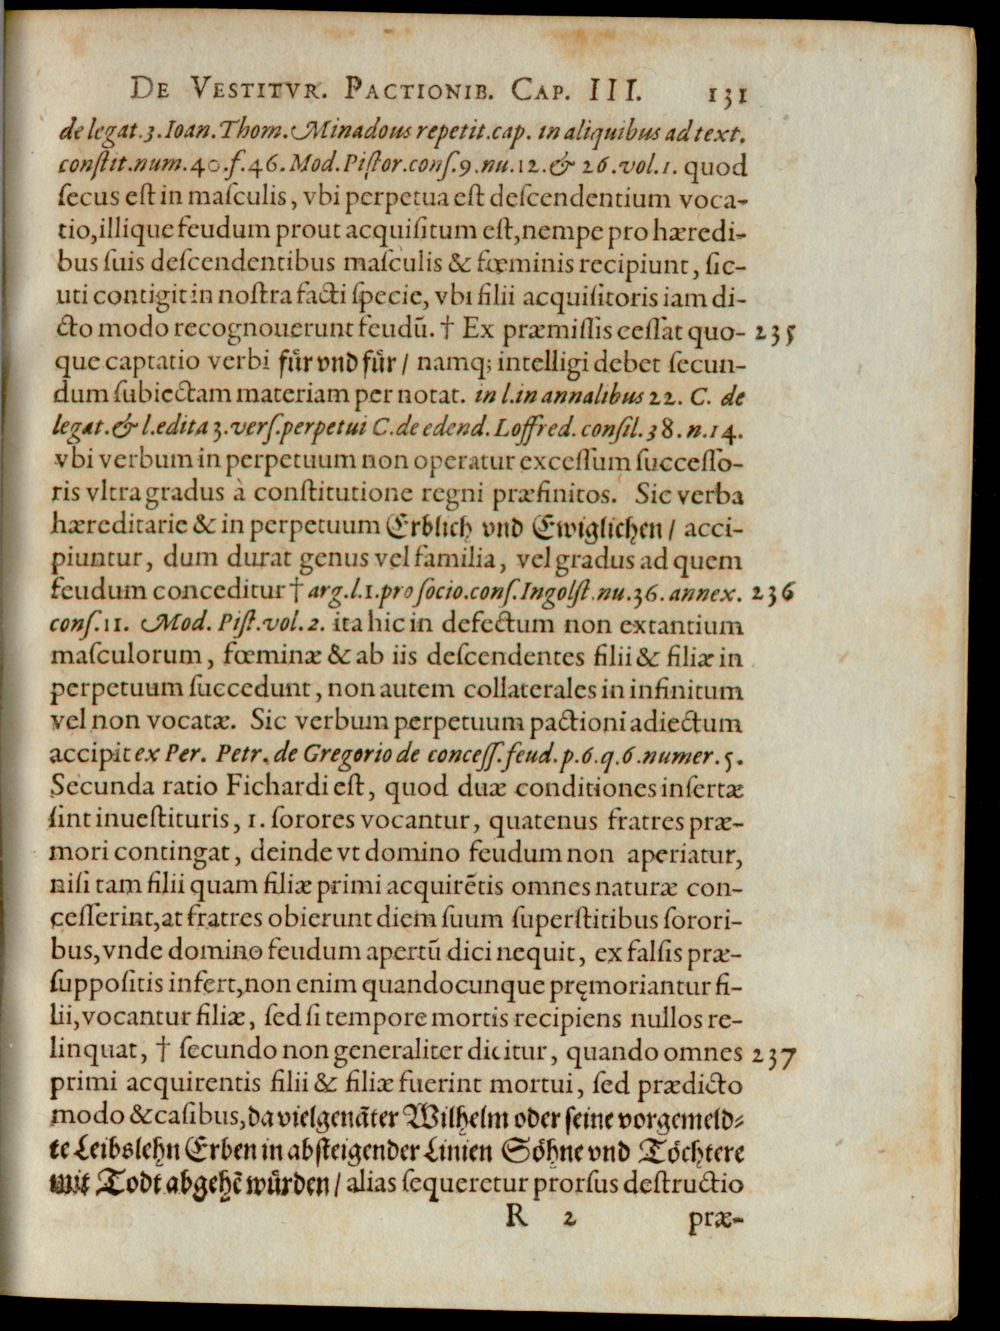 De Vestitvr. Pactionib. Cap. III. 131
de legat. 3. Ioan. Thom. Minadous repetit. cap. in aliquibus ad text.
constit. num. 40. f. 46. Mod. Pistor. cons. 9. nu. 12. & 26. vol. 1. quod
secus est in masculis, vbi perpetua est descendentium voca-
tio, illique feudum prout acquisitum est, nempe pro hæredi-
bus suis descendentibus masculis & fœminis recipiunt, sic-
uti contigit in nostra facti specie, vbi filii acquisitoris iam di-
cto modo recognouerunt feudū. † Ex præmissis cessat quo- 235
que captatio verbi fůr vnd fůr / namq; intelligi debet secun-
dum subiectam materiam per notat. in l. in annalibus 22. C. de
legat. & l. edita 3. vers. perpetui C. de edend. Loffred. consil. 38. n. 14.
vbi verbum in perpetuum non operatur excessum successo-
ris vltra gradus à constitutione regni præfinitos. Sic verba
hæreditarie & in perpetuum Erblich vnd Ewiglichen / acci-
piuntur, dum durat genus vel familia, vel gradus ad quem
feudum conceditur † arg. l. 1. pro socio. cons. Ingolst. nu. 36. annex. 236
cons. 11. Mod. Pist. vol. 2. ita hic in defectum non extantium
masculorum, fœminæ & ab iis descendentes filii & filiæ in
perpetuum succedunt, non autem collaterales in infinitum
vel non vocatæ. Sic verbum perpetuum pactioni adiectum
accipit ex Per. Petr. de Gregorio de concess. feud. p. 6. q. 6. numer. 5.
Secunda ratio Fichardi est, quod duæ conditiones insertæ
sint inuestituris, 1. sorores vocantur, quatenus fratres præ-
mori contingat, deinde vt domino feudum non aperiatur,
nisi tam filii quam filiæ primi acquirētis omnes naturæ con-
cesserint, at fratres obierunt diem suum superstitibus sorori-
bus, vnde domino feudum apertū dici nequit, ex falsis præ-
suppositis infert, non enim quandocunque pręmoriantur fi-
lii, vocantur filiæ, sed si tempore mortis recipiens nullos re-
linquat, † secundo non generaliter dicitur, quando omnes 237
primi acquirentis filii & filiæ fuerint mortui, sed prædicto
modo & casibus, da vielgenāter Wilhelm oder seine vorgemeld-
te Leibslehn Erben in absteigender Linien Söhne vnd Töchtere
mit Todt abgehē wůrden / alias sequeretur prorsus destructio
R 2 præ-